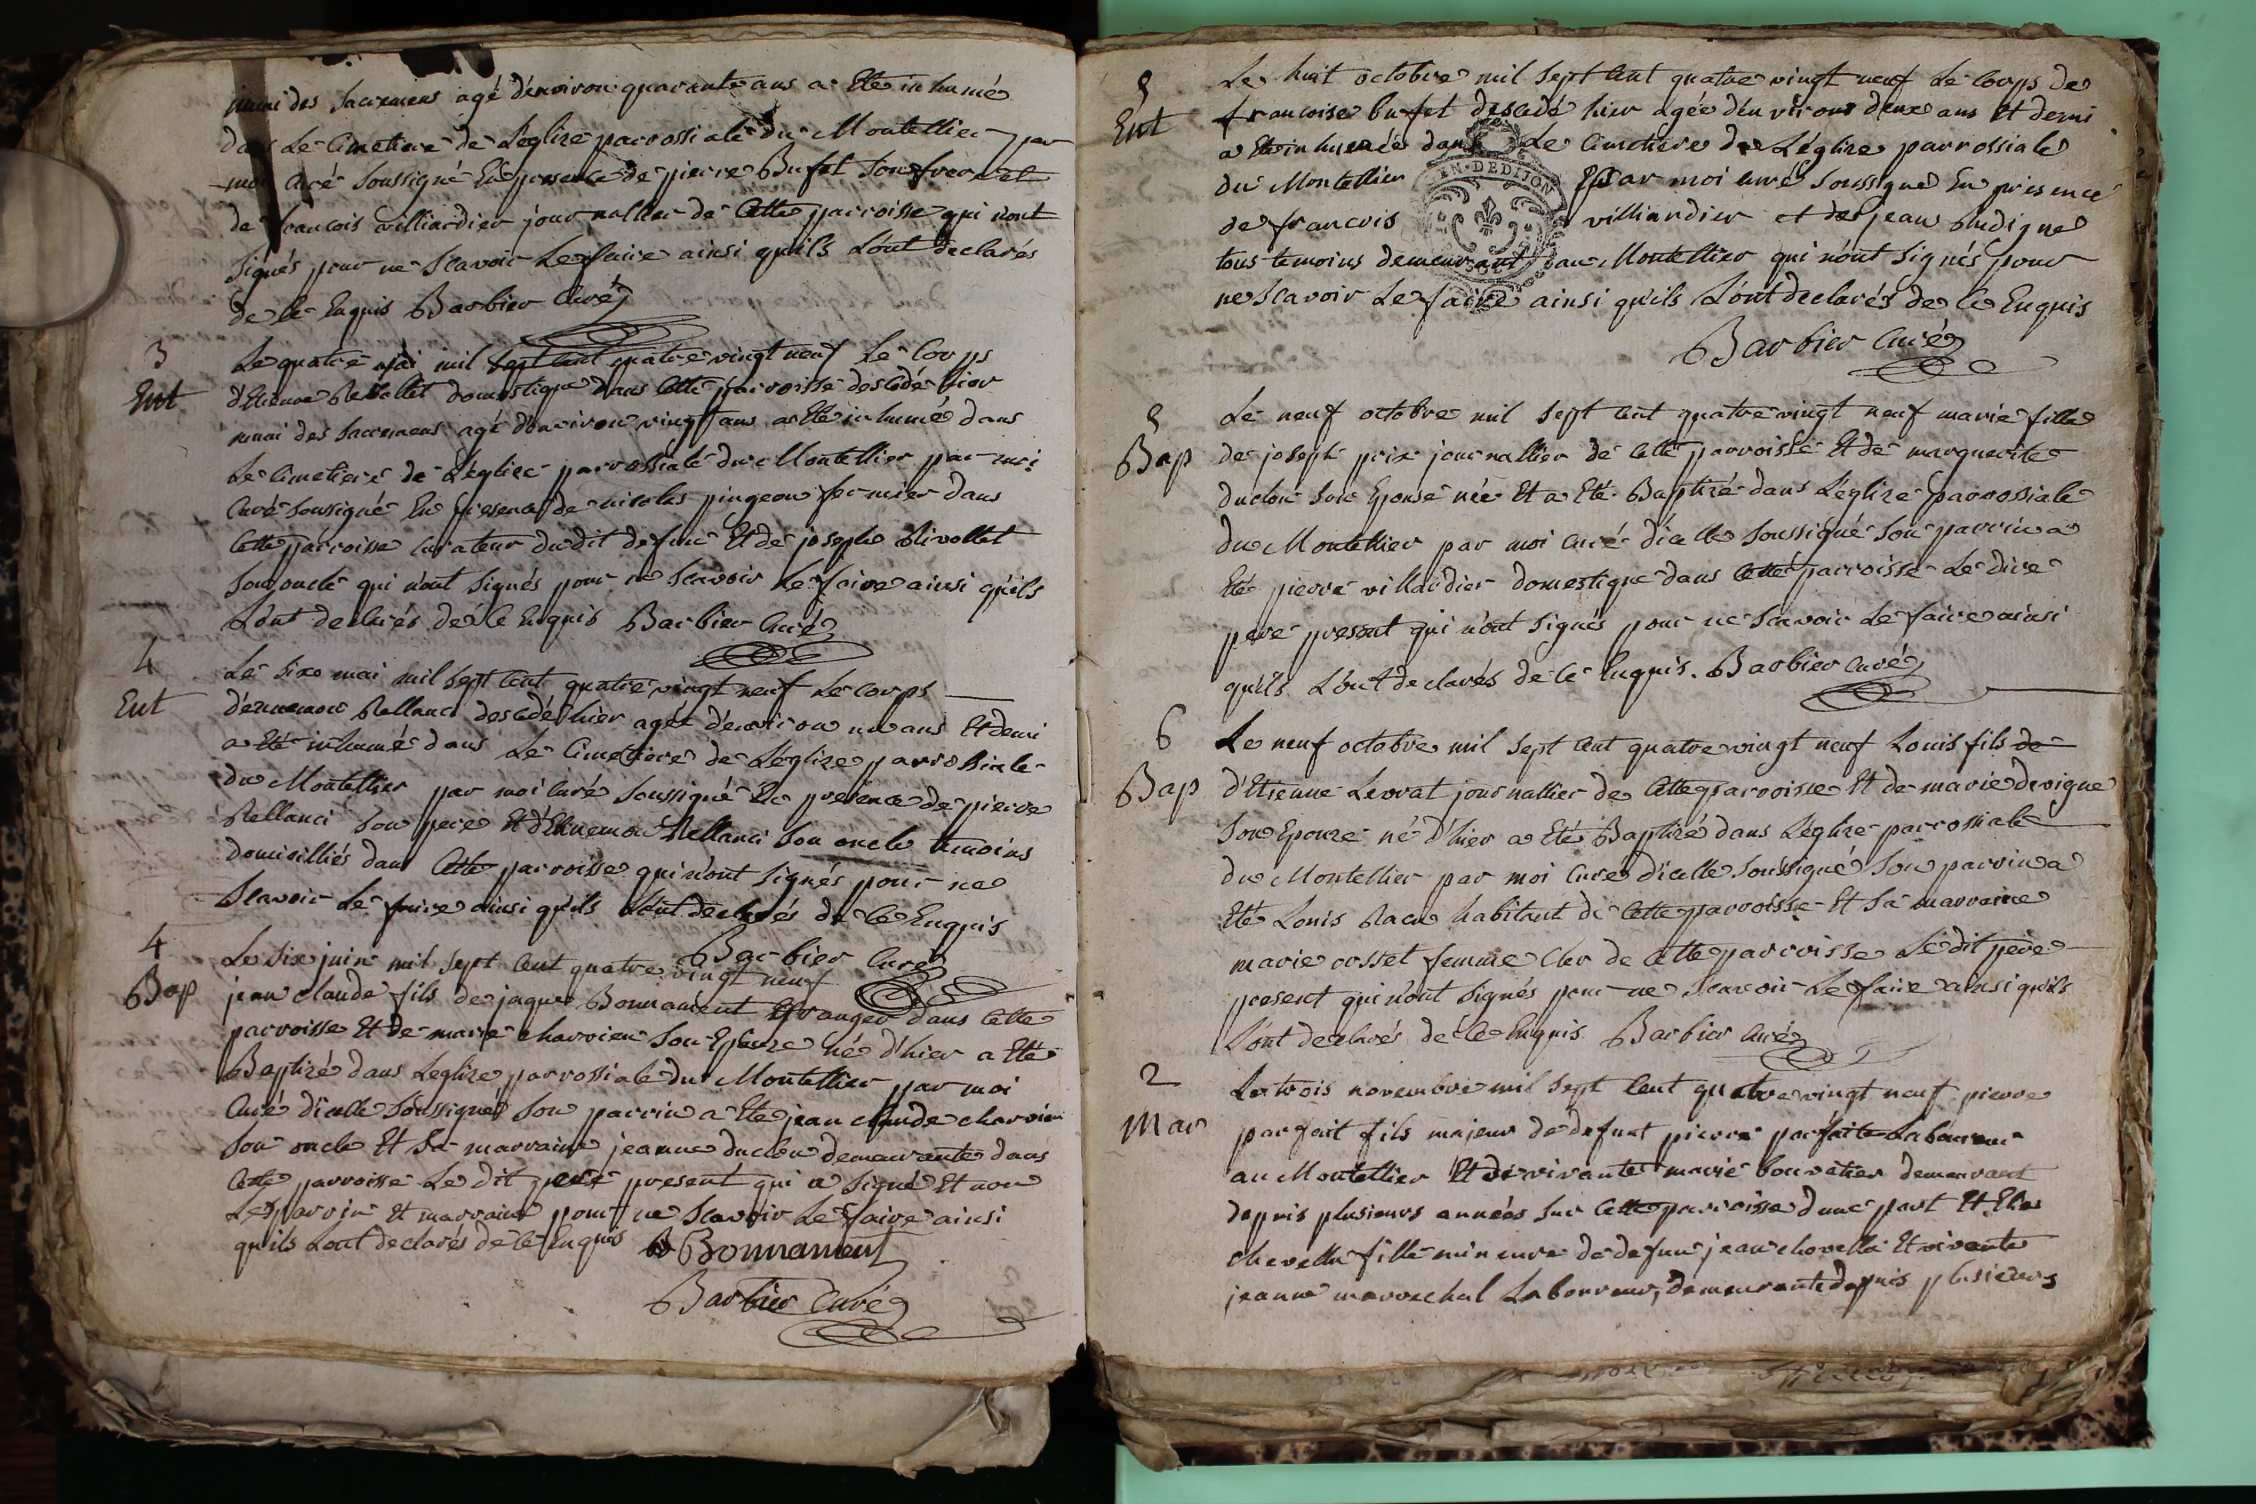 muni des sacremens agé d'environ quarante ans a Eté inhumé
dans Le Cimetiere de L'eglise parrossiale du Montellier par
moi Curé soussigné En presence de pierre Bufet son frere et
de francois villiardier journallier de Cette parroisse qui n'ont
signés pour ne scavoir Le faire ainsi qu'ils L'ont declarés
de Ce Enquis Barbier Curé
3
Le quatre mai mil sept Cent quatre vingt neuf Le Corps
Ent
d'Etienne domestique dans Cette parroisse descedé hier
muni des sacremens agé d'environ vingt ans a Eté inhumé dans
Le Cimetiere de L'eglise parrossiale du Montellier par moi
Curé soussigné En presence de nicolas pingeon fermier dans
Cette parroisse Curateur du dit defunc Et de joseph Rivollet
son oncle qui n'ont signés pour ne scavoir Le faire ainsi qu'ils
L'ont declarés de Ce Enquis Barbier Curé
4
Le six mai mil sept Cent quatre vingt neuf Le Corps
Ent
d'ennemon Rellanci descedé hier agé d'environ un ans Et demi
a Eté inhumé dans Le Cimetiere de L'eglise parrossiale
du Montellier par moi Curé soussigné En presence de pierre
Rellanci son pere Et d'Ennemon Rellanci son oncle temoins
domicilliés dans Cette parroisse qui n'ont signés pour ne
scavoir Le faire ainsi qu'ils L'ont declarés de Ce Enquis
Barbier Curé
4
Le six juin mil sept Cent quatre vingt neuf
Bap
jean claude fils de jaques Bonnament Granger dans Cette
parroisse Et de marie charvien son Epouze né d'hier a Eté
Baptizé dans L'eglize parrossiale du Montellier par moi
Curé d'icelle soussigné son parrin a Eté jean claude charvien
son oncle Et sa marraine jeanne duclou demeurante dans
Cette parroisse Le dit pere present qui a signé Et non
Le parrin Et marraine pour ne scavoir Le faire ainsi
qu'ils L'ont declarés de Ce Enquis Bonnament
Barbier Curé
5
Le huit octobre mil sept Cent quatre vingt neuf Le Corps de
Ent
francoise bufet descedé hier agée d'environs deux ans Et demi
a Eté inhumée dans Le Cimetiere de L'église parrossiale
du Montellier par moi curé soussigné En presence
EN. DEDIJON
de francois villiardier et de jean
tous temoins demeurant au Montellier qui n'ont signés pour
ne scavoir Le faire ainsi qu'ils L'ont declarés de Ce Enquis
Barbier Curé
5
Le neuf octobre mil sept Cent quatre vingt neuf marie fille
Bap
de joseph prix journallier de Cette parroisse Et de marguerite
duclou son Epouse née Et a Eté Baptizé dans L'eglize parrossiale
du Montellier par moi Curé d'icelle soussigné son parrin a
Eté pierre villardier domestique dans Cette parroisse Le dire
pere present qui n'ont signés pour ne scavoir Le faire ainsi
qu'ils L'ont declarés de Ce Enquis. Barbier Curé
6
Le neuf octobre mil sept Cent quatre vingt neuf Louis fils de
Bap
d'Etienne Levrat journallier de Cette parroisse Et de marie devigne
son Epouze né d'hier a Eté Baptizé dans L'eglize parrossiale
du Montellier par moi Curé d'icelle soussigné son parrin a
Eté Louis habitant de Cette parroisse Et sa marraine
marie femme de Cette parroisse Le dit pere
present qui n'ont signés pour ne scavoir Le faire ainsi qu'ils
L'ont declarés de Ce Enquis Barbier Curé
2
Le trois novembre mil sept Cent quatre vingt neuf pierre
Mar
parfait fils majeur de defunt pierre parfait Laboureur
au Montellier Et de vivante marie bouvetier demeurant
depuis plusieurs années sur Cette parroisse d'une part Et
fille mineure de defun jean Et vivante
jeanne marrechal Laboureur, demeurante depuis plusieurs